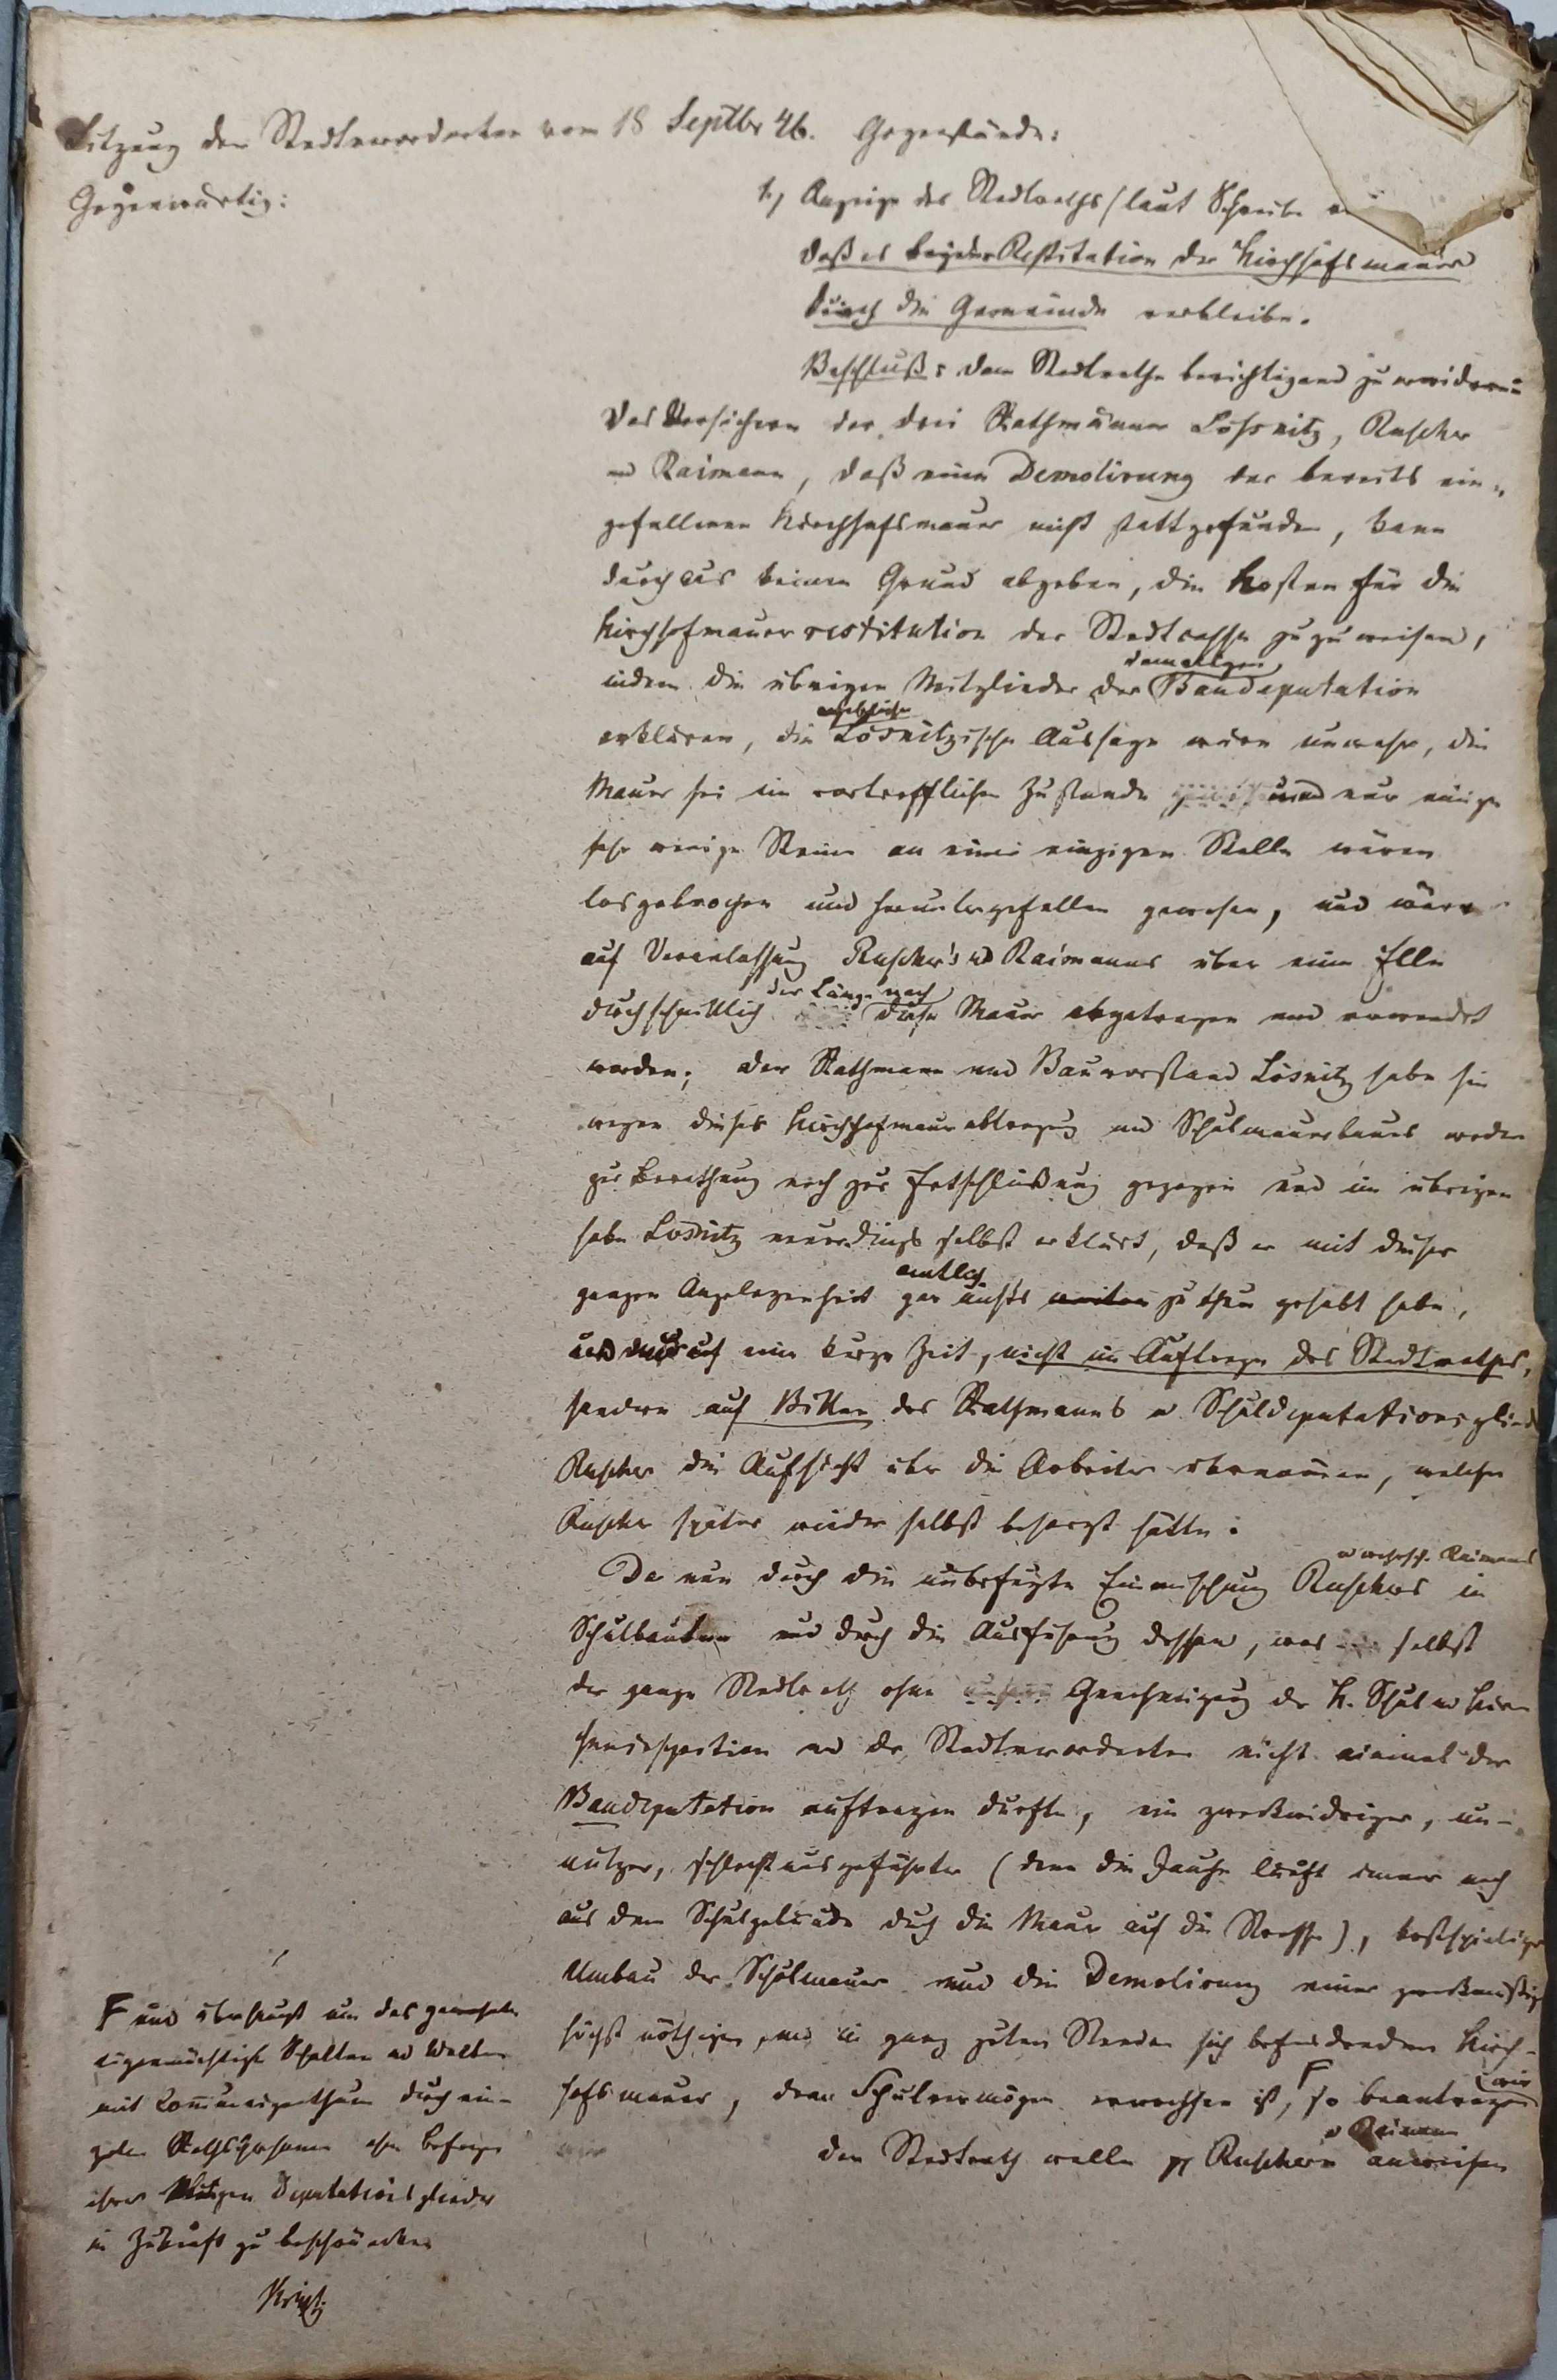 Sitzung der Stadtverordneten vom 18 Septbr 46. Gegenstände:
Gegenwärtig:
1.) Anzeige des Stadtraths (laut Schreibe
daß es bei der Restitution der Kirchhofsmauer
durch die Gemeinde verbleibe.
Beschluß: dem Stadtrathe berichtigend zu erwidern:
Das Versichern der drei Rathmänner Lößnitz, Ruscher
und Raimann, daß eine Demolirung der bereits ein-
gefallenen Kirchhofsmauer nicht stattgefunden, kann
durchaus keinen Grund abgeben, die Kosten für die
Kirchhofmauerrestitution der Stadtcasse zuzuweisen,
damaligen
indem die übrigen Mitglieder der Baudeputation
angebliche
erklären, die Lösnitzische Aussage wäre unwahr, die
Mauer sei im vortrefflichen Zustande und nur einige
sehr wenige Steine an einer einzigen Stelle wären
losgebrochen und heruntergefallen gewesen, und wäre
auf Veranlassung Ruscher's u Raimanns über eine Elle
der Länge nach
durchschnittlich diese Mauer abgetragen und verwendet
worden; der Rathmann und Bauvorstand Lösnitz habe sie
wegen dieses Kirchhofmauerabtragung und Schulmauerbaues weder
zur Berathung noch zur Entschließung gezogen und im übrigen
habe Lösnitz neuerdings selbst erklärt, daß er mit dieser
amtlich
ganzen Angelegenheit gar nichts weiter zu thun gehabt habe,
und nur auf eine kurze Zeit, nicht im Auftrage des Stadtrathes,
sondern auf Bitten des Rathmanns u Schuldeputationsglied
Ruscher die Aufsicht über die Arbeiter übernommen, welche
Ruscher später wieder selbst besorgt hätte.
u Raimanns
Da nun durch die unbefugte Einmischung Ruschers in
Schulbauten und durch die Ausführung dessen, was selbst
der ganze Stadtrath ohne Genehmigung der K. Schul u Kir-
cheninspection und der Stadtverordneten nicht einmal der
Baudeputation auftragen durfte, ein zweckwidriger, un-
nützer, schlecht ausgeführter (denn die Jauche läuft immer noch
aus dem Schulgebäude durch die Mauer auf die Strasse), kostspieliger
Umbau der Schulmauer und die Demolirung einer zweckmäßig
höchst nöthigen, und in ganz gutem Stande sich befindenden Kirch-
F wir
hofsmauer, dem Schulvermögen erwachsen ist, so beantragen
u Raimann
der Stadtrath wolle pp Ruschern anweisen
F und überhaupt um das
eigenmächtige Schalten und Walten
mit Communeigenthum durch ein-
zelne Rathspersonen ohne Befragen
ihrer übrigen Deputationsglieder
in Zukunft zu beschränken